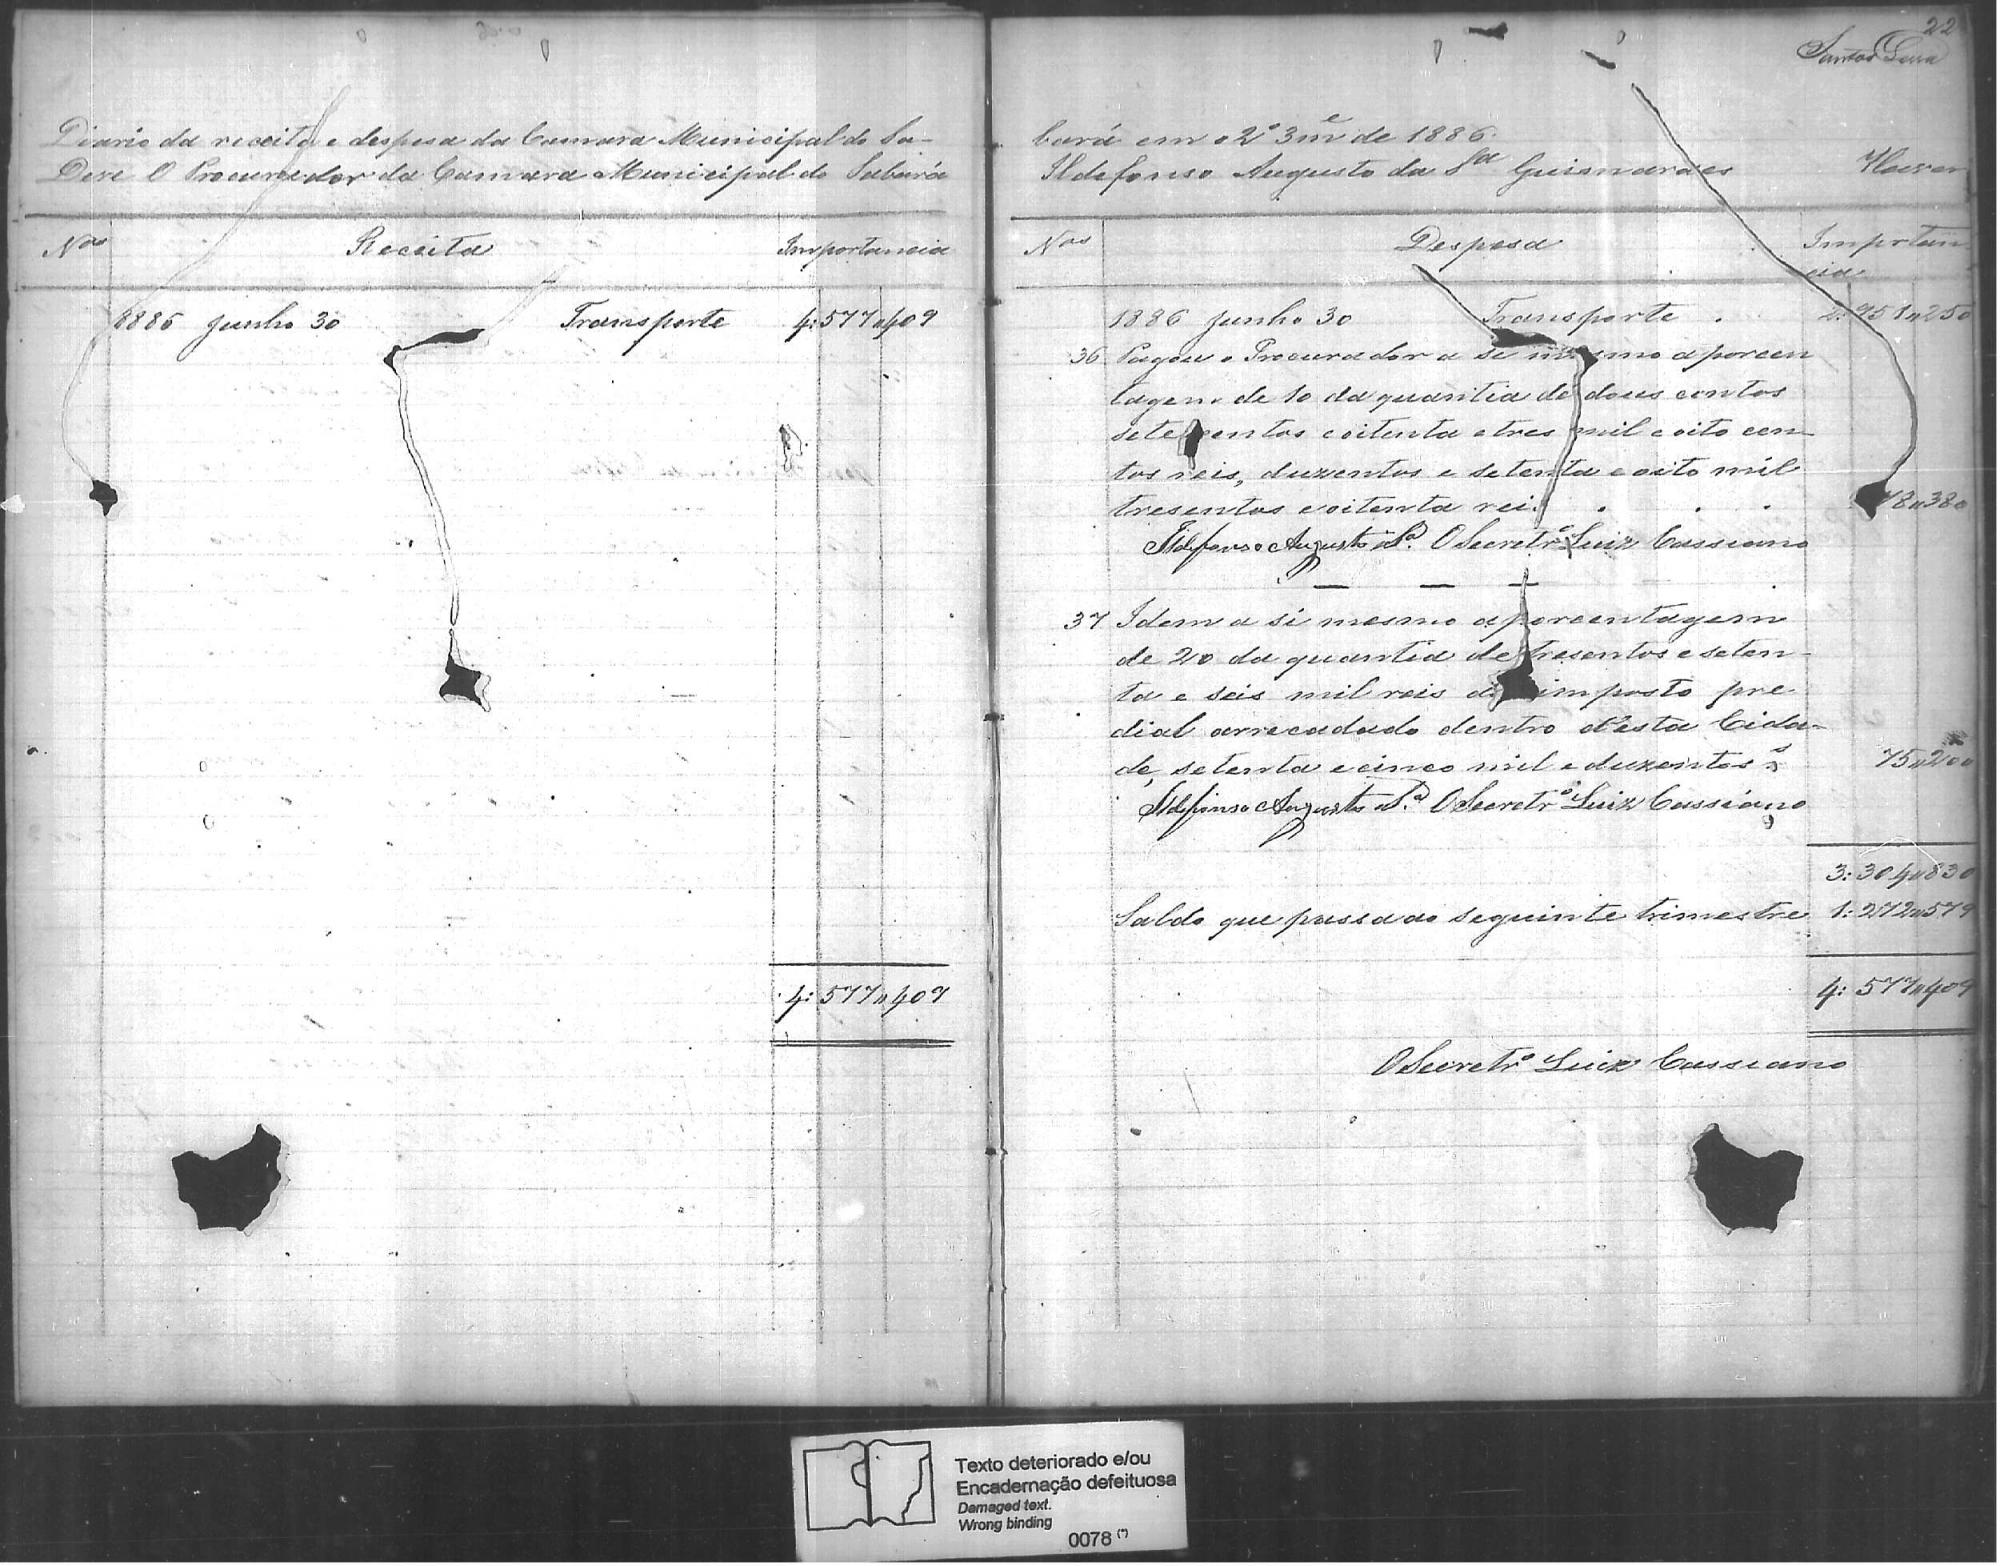 Diario da receita e despesa da Camara Municipal do Sa-
Deve O Procurador da Camara Municipal do Sabará
Nos Receita Importancia
1886 Junho 30 Transporte 4:577"409
4:577"409
22
Santos
bará em o 2º 3me de 1886.
Ildefonso Augusto da Sa Guimaraes Haver
Nos Despesa Importan
cia
1886 Junho 30 Transporte . 2:951"250
36 Pagou o Procurador a si mesmo a porcen
tagem de 10 da quantia de dous contos
sete centos e oitenta e tres mil e oito cen-
tos reis, duzentos e setenta e oito mil
tresentos e oitenta reis . . . 78"380
Ildefonso Augusto da Sa. O Secretrº Luiz Cassiano
37 Idem a si mesmo a porcentagem
de 20 da quantia de tresentos e seten-
ta e seis mil reis do imposto pre-
dial arrecadado dentro d'esta Cida-
de, setenta e cinco mil e duzentos rs 75"200
Ildefonso Augusto da Sa. O Secretrº Luiz Cassiano
3:304"830
Saldo que passa ao seguinte trimestre 1:272"579
4:577"409
O Secretrº Luiz Cassiano
Texto deteriorado e/ou
Encadernação defeituosa
Damaged text.
Wrong binding
0078 (*)